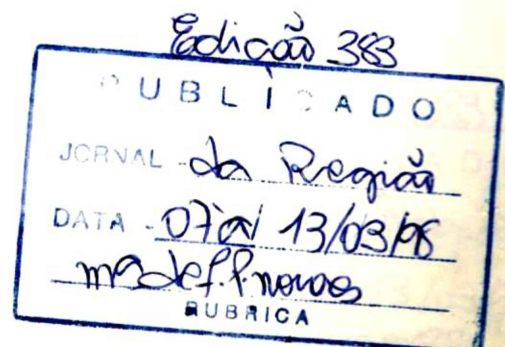 Edição 383
PUBLICADO
JORNAL da Região
DATA 07 a 13/03/98
RUBRICA